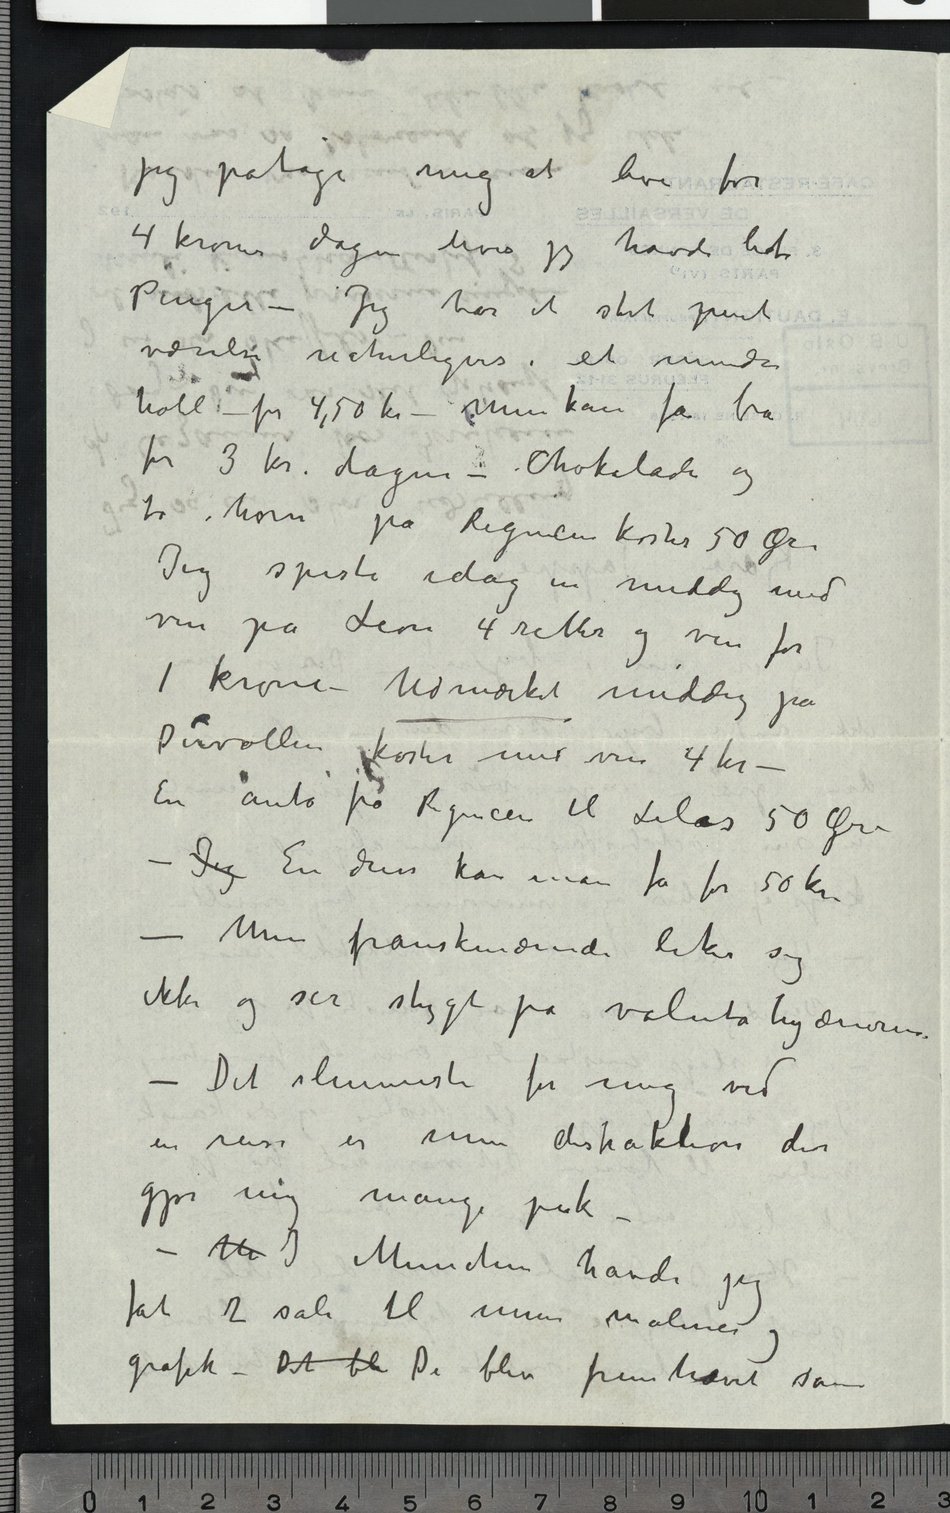 jeg påtage mig at leve for
4 kroner dagen hvis jeg havde lidt
Penger – Jeg har et stort pent
værelse naturligvis i et mindre
hotel – for 4,50 kr – Men kan få bra
for 3 kr. dagen – Chokolade og
to horn på Regencen koster 50 Øre
Jeg spiste idag en middag med
vin på Leon 4 retter og vin for
1 krone – Udmærket middag på
Duvallen koster med vin 4 kr –
En auto fra Regencen til Lilas 50 Øre
– Jeg En dress kan man få for 50 kr.
– Men franskmændene liker sig
ikke og ser stygt på valuta hyænerne
– Det slemmeste for mig ved
en reise er min distraktion der
gjør mig mange puk –
– I München havde jeg
fåt 2 sale til mine malerier og
grafik – Det ble De blev fremhævet som